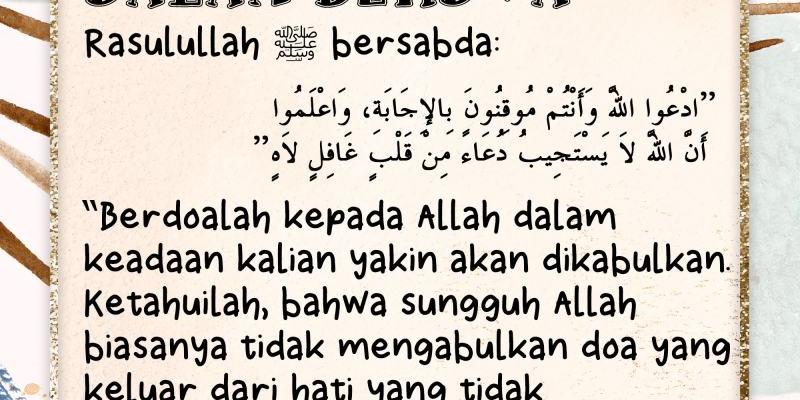 Rasulullah ﷺ bersabda:
”ادْعُوا اللهَ وَأَنْتُمْ مُوقِنُونَ بِالإِجَابَةِ، وَاعْلَمُوا
أَنَّ اللهَ لاَ يَسْتَجِيبُ دُعَاء مِنْ قَلْبٍ غَافِلٍ لاَهٍ”
“Berdoalah kepada Allah dalam
keadaan kalian yakin akan dikabulkan.
Ketahuilah, bahwa sungguh Allah
biasanya tidak mengabulkan doa yang
keluar dari hati yang tidak